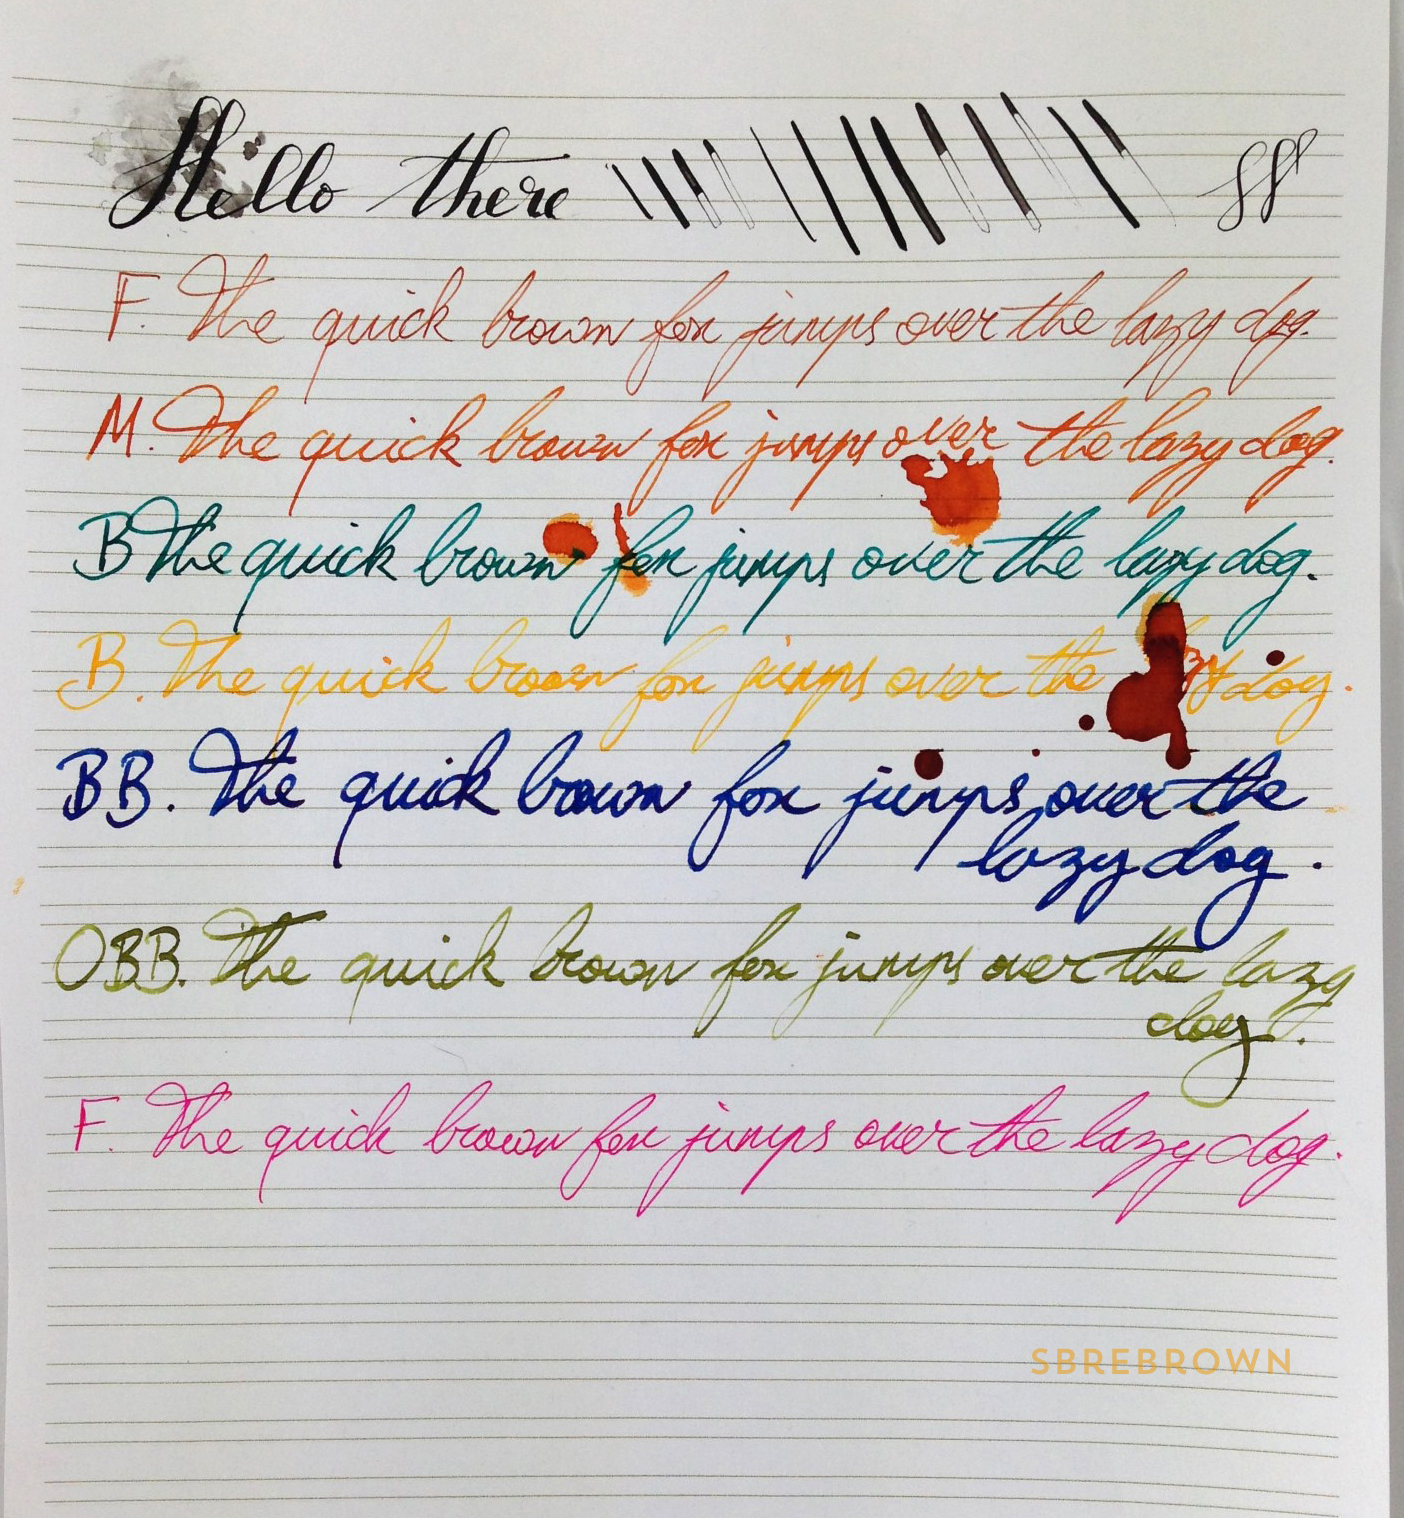 Hello there
F. The quick brown fox jumps over the lazy dog.
M. The quick brown fox jumps over the lazy dog.
B The quick brown fox jumps over the lazy dog.
B. The quick brown fox jumps over the lazy dog.
BB. The quick brown fox jumps over the
lazy dog.
OBB. The quick brown fox jumps over the lazy
dog.
F. The quick brown fox jumps over the lazy dog.
SBREBROWN